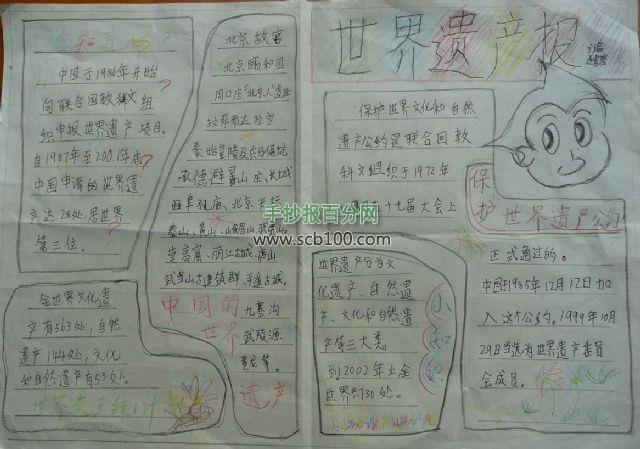 世界遗产报
你知道吗?
中国于1986年开始
向联合国教科文组
织申报世界遗产项目。
自1987年至2001年底
中国申请的世界遗
产达28处,居世界
第三位。
全世界文化遗
产有563处,自然
遗产144处,文化
和自然遗产有53处。
世界遗产统计
北京故宫
北京颐和园
周口店"北京人"遗址
拉萨布达拉宫
秦始皇陵及兵马俑坑
承德避暑山庄、长城
曲阜孔庙、北京天坛
泰山、黄山、峨眉山、武夷山。
丽江古城、庐山
武当山古建筑群、平遥古城。
九寨沟
武陵源
黄龙等。
中国的
世界
遗产
保护世界文化和自然
遗产公约是联合国教
科文组织于1972年
十七届大会上
保护世界遗产公约
正式通过的。
中国1985年12月12日加
入这个公约。1999年10月
29日当选为世界遗产委员
会成员。
世界遗产分为文
化遗产、自然遗
产、文化和自然遗
产等三大类
到2002年止全
世界共730处。
小知识
手抄报百分网
www.scb100.com